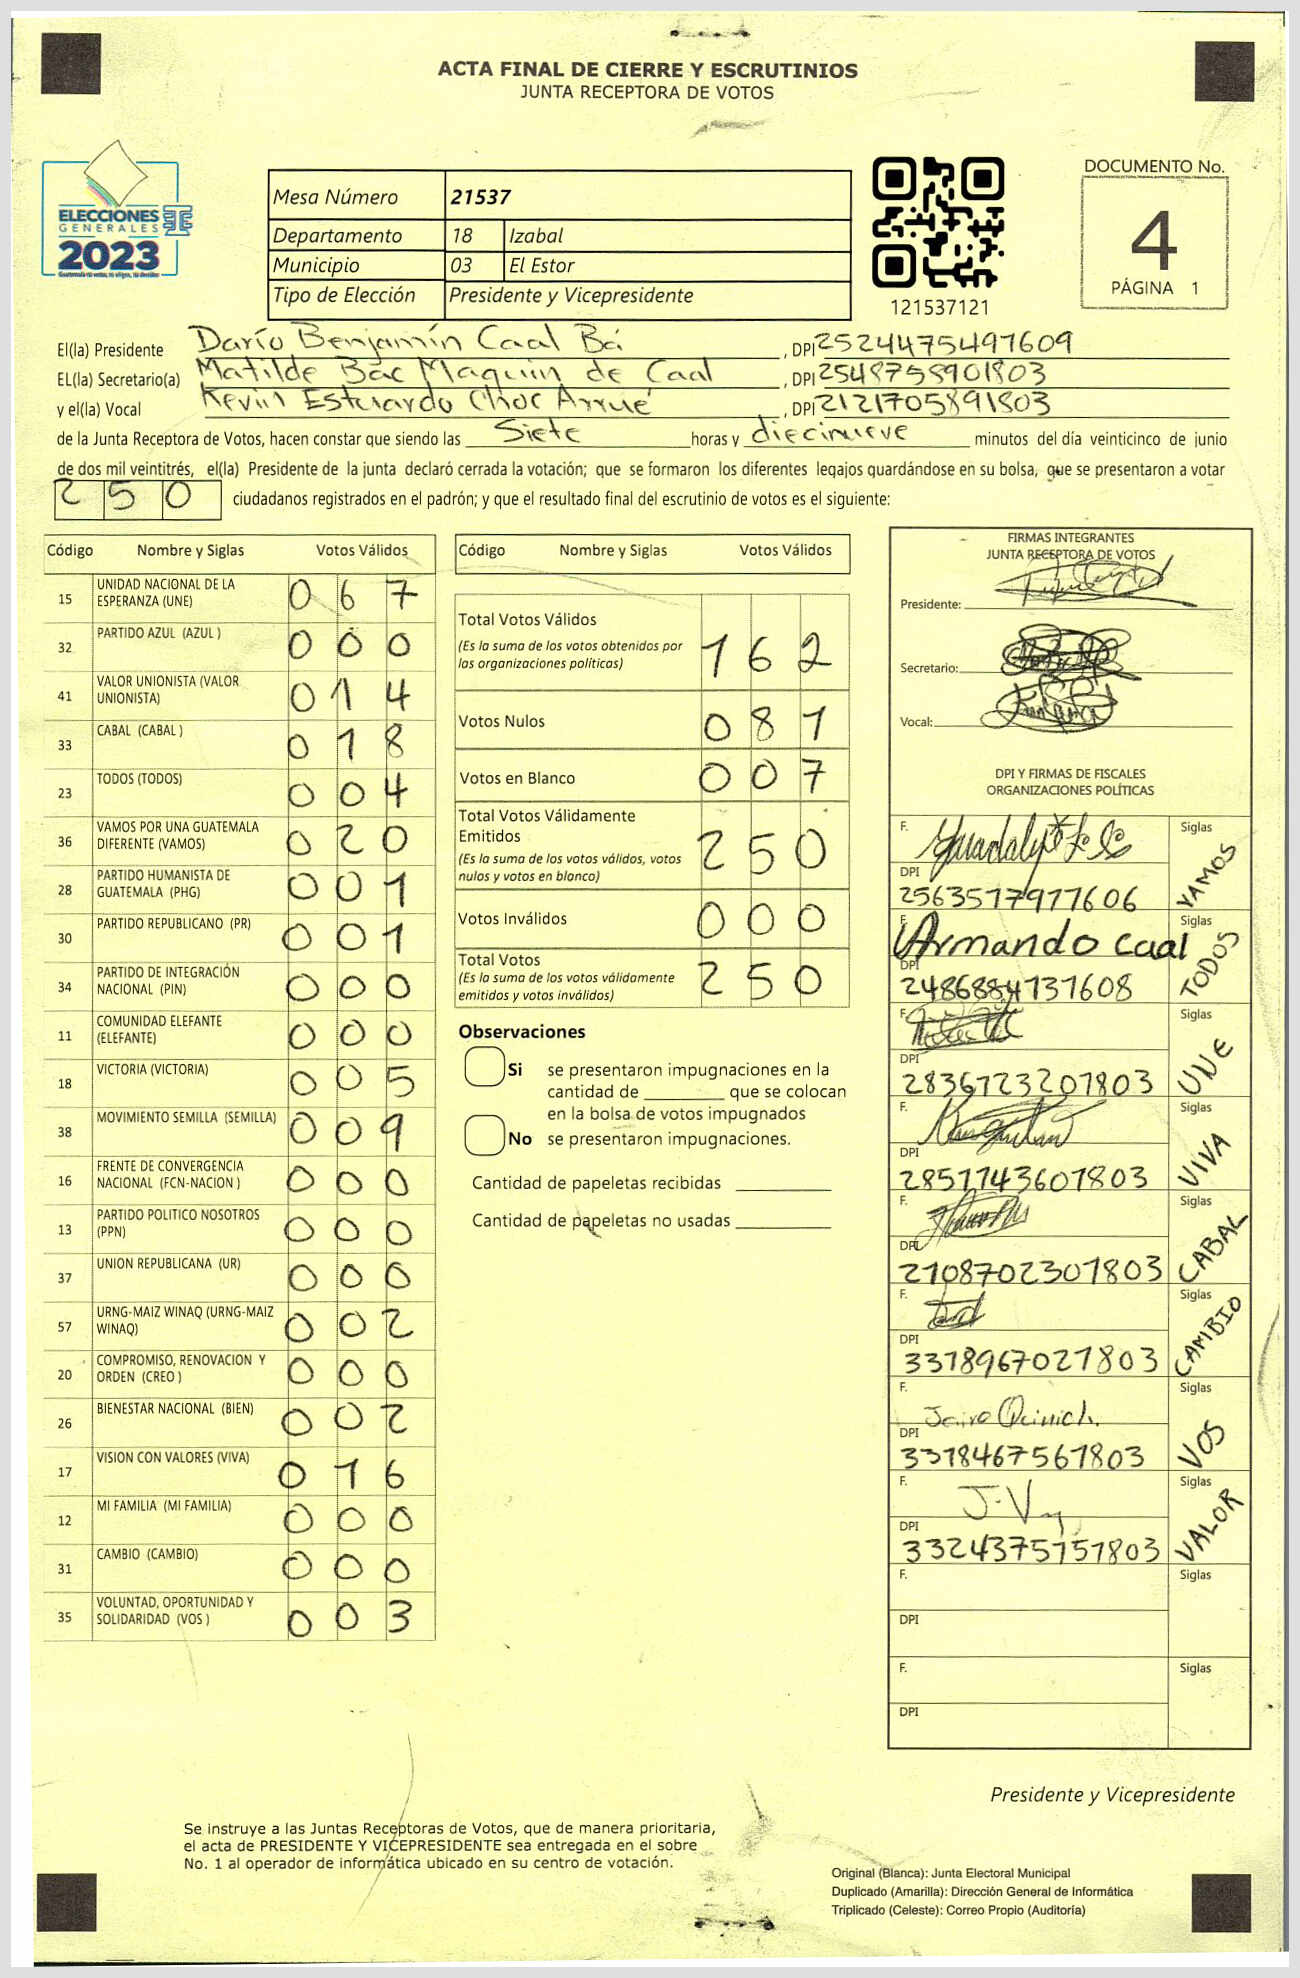 ACTA FINAL DE CIERRE Y ESCRUTINIOS
JUNTA RECEPTORA DE VOTOS
ELECCIONES
GENERALES
2023
Mesa Número 21537
Departamento 18 Izabal
Municipio 03 El Estor
Tipo de Elección Presidente y Vicepresidente
121537121
DOCUMENTO No.
4
PÁGINA 1
El(la) Presidente Darío Benjamín Caal Bá, DPI 2524475497609
EL(la) Secretario(a) Matilde Bac Maquin de Caal, DPI 2548758901803
y el(la) Vocal Kevin Estuardo Choc Arrué, DPI 2121705891803
de la Junta Receptora de Votos, hacen constar que siendo las Siete horas y diecinueve minutos del día veinticinco de junio
de dos mil veintitrés, el(la) Presidente de la junta declaró cerrada la votación; que se formaron los diferentes legajos guardándose en su bolsa, que se presentaron a votar
250 ciudadanos registrados en el padrón; y que el resultado final del escrutinio de votos es el siguiente:
Código Nombre y Siglas Votos Válidos
15 UNIDAD NACIONAL DE LA ESPERANZA (UNE) 067
32 PARTIDO AZUL (AZUL ) 000
41 VALOR UNIONISTA (VALOR UNIONISTA) 014
33 CABAL (CABAL ) 018
23 TODOS (TODOS) 004
36 VAMOS POR UNA GUATEMALA DIFERENTE (VAMOS) 020
28 PARTIDO HUMANISTA DE GUATEMALA (PHG) 001
30 PARTIDO REPUBLICANO (PR) 001
34 PARTIDO DE INTEGRACIÓN NACIONAL (PIN) 000
11 COMUNIDAD ELEFANTE (ELEFANTE) 000
18 VICTORIA (VICTORIA) 005
38 MOVIMIENTO SEMILLA (SEMILLA) 009
16 FRENTE DE CONVERGENCIA NACIONAL (FCN-NACION ) 000
13 PARTIDO POLITICO NOSOTROS (PPN) 000
37 UNION REPUBLICANA (UR) 000
57 URNG-MAIZ WINAQ (URNG-MAIZ WINAQ) 002
20 COMPROMISO, RENOVACION Y ORDEN (CREO ) 000
26 BIENESTAR NACIONAL (BIEN) 002
17 VISION CON VALORES (VIVA) 016
12 MI FAMILIA (MI FAMILIA) 000
31 CAMBIO (CAMBIO) 000
35 VOLUNTAD, OPORTUNIDAD Y SOLIDARIDAD (VOS ) 003
Código Nombre y Siglas Votos Válidos
Total Votos Válidos 162
(Es la suma de los votos obtenidos por
las organizaciones políticas)
Votos Nulos 081
Votos en Blanco 007
Total Votos Válidamente
Emitidos 250
(Es la suma de los votos válidos, votos
nulos y votos en blanco)
Votos Inválidos 000
Total Votos 250
(Es la suma de los votos válidamente
emitidos y votos inválidos)
Observaciones
Si se presentaron impugnaciones en la
cantidad de ________ que se colocan
en la bolsa de votos impugnados
No se presentaron impugnaciones.
Cantidad de papeletas recibidas
Cantidad de papeletas no usadas
FIRMAS INTEGRANTES
JUNTA RECEPTORA DE VOTOS
Presidente:
Secretario:
Vocal:
DPI Y FIRMAS DE FISCALES
ORGANIZACIONES POLÍTICAS
F. Siglas VAMOS
DPI 2563517977606
F. Armando Caal Siglas TODOS
DPI 2486884737608
F. Siglas UNE
DPI 2836723207803
F. Siglas VIVA
DPI 2851743607803
F. Siglas CABAL
DPI 2708702307803
F. Siglas CAMBIO
DPI 3378967027803
F. Siglas VOS
DPI 3378467567803
F. Siglas VALOR
DPI 3324375757803
F. Siglas
DPI
F. Siglas
DPI
Presidente y Vicepresidente
Se instruye a las Juntas Receptoras de Votos, que de manera prioritaria,
el acta de PRESIDENTE Y VICEPRESIDENTE sea entregada en el sobre
No. 1 al operador de informática ubicado en su centro de votación.
Original (Blanca): Junta Electoral Municipal
Duplicado (Amarilla): Dirección General de Informática
Triplicado (Celeste): Correo Propio (Auditoría)